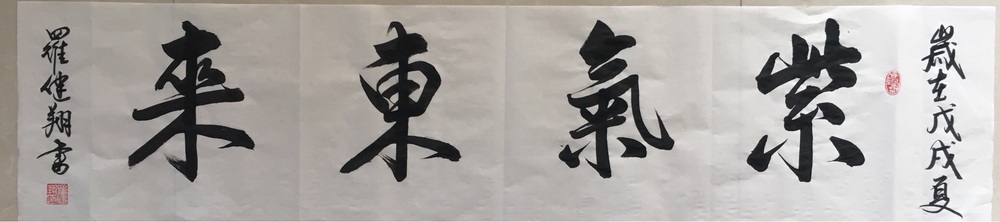 歲在戊戌夏
紫氣東来
羅健翔書